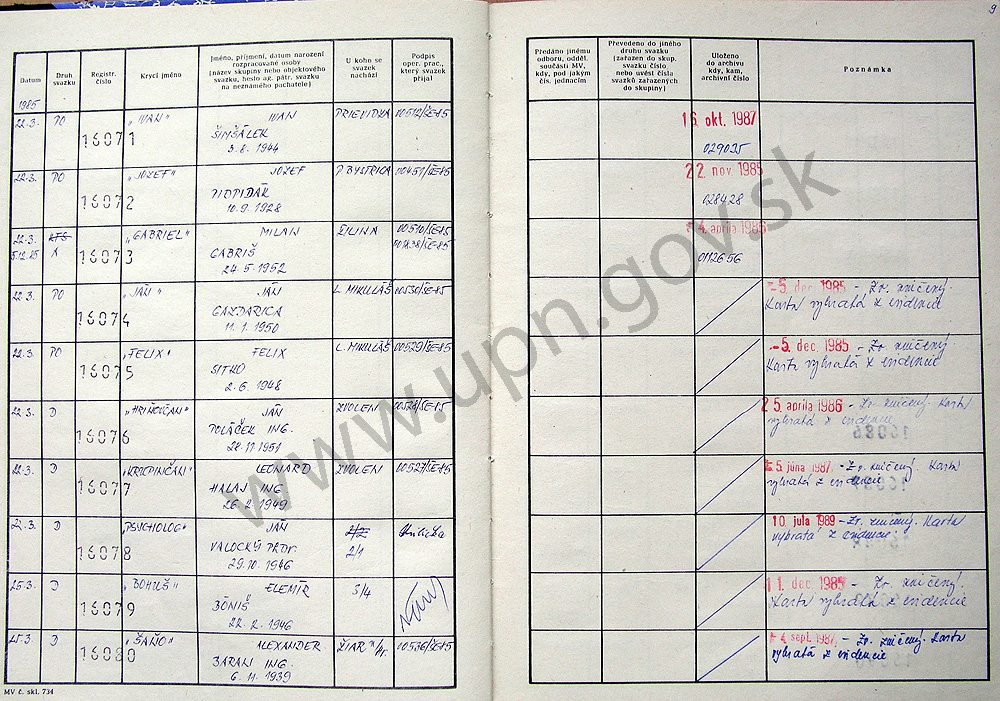 9
Datum
Druh
svazku
Registr.
číslo
Krycí jméno
Jméno, příjmení, datum narození
rozpracované osoby
(název skupiny nebo objektového
svazku, heslo ag. pátr. svazku
na neznámého pachatele)
U koho se
svazek
nachází
Podpis
oper. prac.,
který svazek
přijal
Předáno jinému
odboru, odděl.
součásti MV,
kdy, pod jakým
čís. jednacím
Převedeno do jiného
druhu svazku
(zařazen do skup.
svazku číslo
nebo uvést čísla
svazků zařazených
do skupiny)
Uloženo
do archivu
kdy, kam,
archivní číslo
Poznámka
1985
22.3. PO 16071 „IVAN" IVAN PRIEVIDZA 00512/ŠE-85 16. okt. 1987
ŠIMŠÁLEK 029035
3.8.1944
22.3. PO 16072 „JOZEF" JOZEF P. BYSTRICA 00451/ŠE-85 22. nov. 1985
PIOPIDÁK 028428
10.9.1928
22.3. 16073 „GABRIEL" MILAN ŽILINA 00510/ŠE-85 4. apríla 1986
5.12.85 X GABRIŠ
24.5.1952
22.3. PO 16074 „JÁN" JÁN L. MIKULÁŠ 00530/ŠE-85 -5. dec. 1985 - Zv. zničený.
GAZDARICA Karta vybratá z evidencie
11.1.1950
22.3. PO 16075 „FELIX" FELIX L. MIKULÁŠ 00529/ŠE-85 -5. dec. 1985 - Zv. zničený
SITKO Karta vybratá z evidencie
2.6.1948
22.3. D 16076 „HRINOVČAN" JÁN ZVOLEN 00528/ŠE-85 25. apríla 1986 - Zv. zničený. Karta
POLÁČEK ING. vybratá z evidencie
28.11.1951
22.3. D 16077 „KRUPINČAN" LEONARD ZVOLEN 00527/ŠE-85 5. júna 1987 - Zv. zničený. Karta
HALAJ ING vybratá z evidencie
26.2.1949
22.3. D 16078 „PSYCHOLOG" JÁN 10. júla 1989 - Zv. zničený. Karta
VALOCKÝ PROF. 2/1 vybratá z evidencie
29.10.1946
25.3. D 16079 „BOHUŠ" ELEMÍR S/4 11. dec. 1985 - Zv. zničený.
BÖNIŠ Karta vybratá z evidencie
22.2.1946
25.3. D 16080 „ŠAŇO" ALEXANDER ŽIAR n/Hr. 00536/ŠE-85 4. sept. 1987 - Zv. zničený. Karta
BARAN ING. vybratá z evidencie
6.11.1939
MV č. skl. 734
www.upn.gov.sk